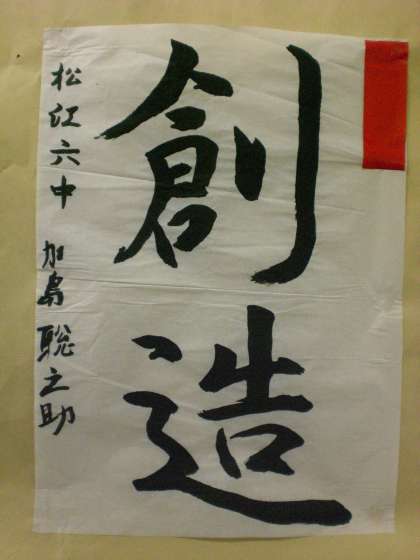 創造
松江六中 加島聡之助